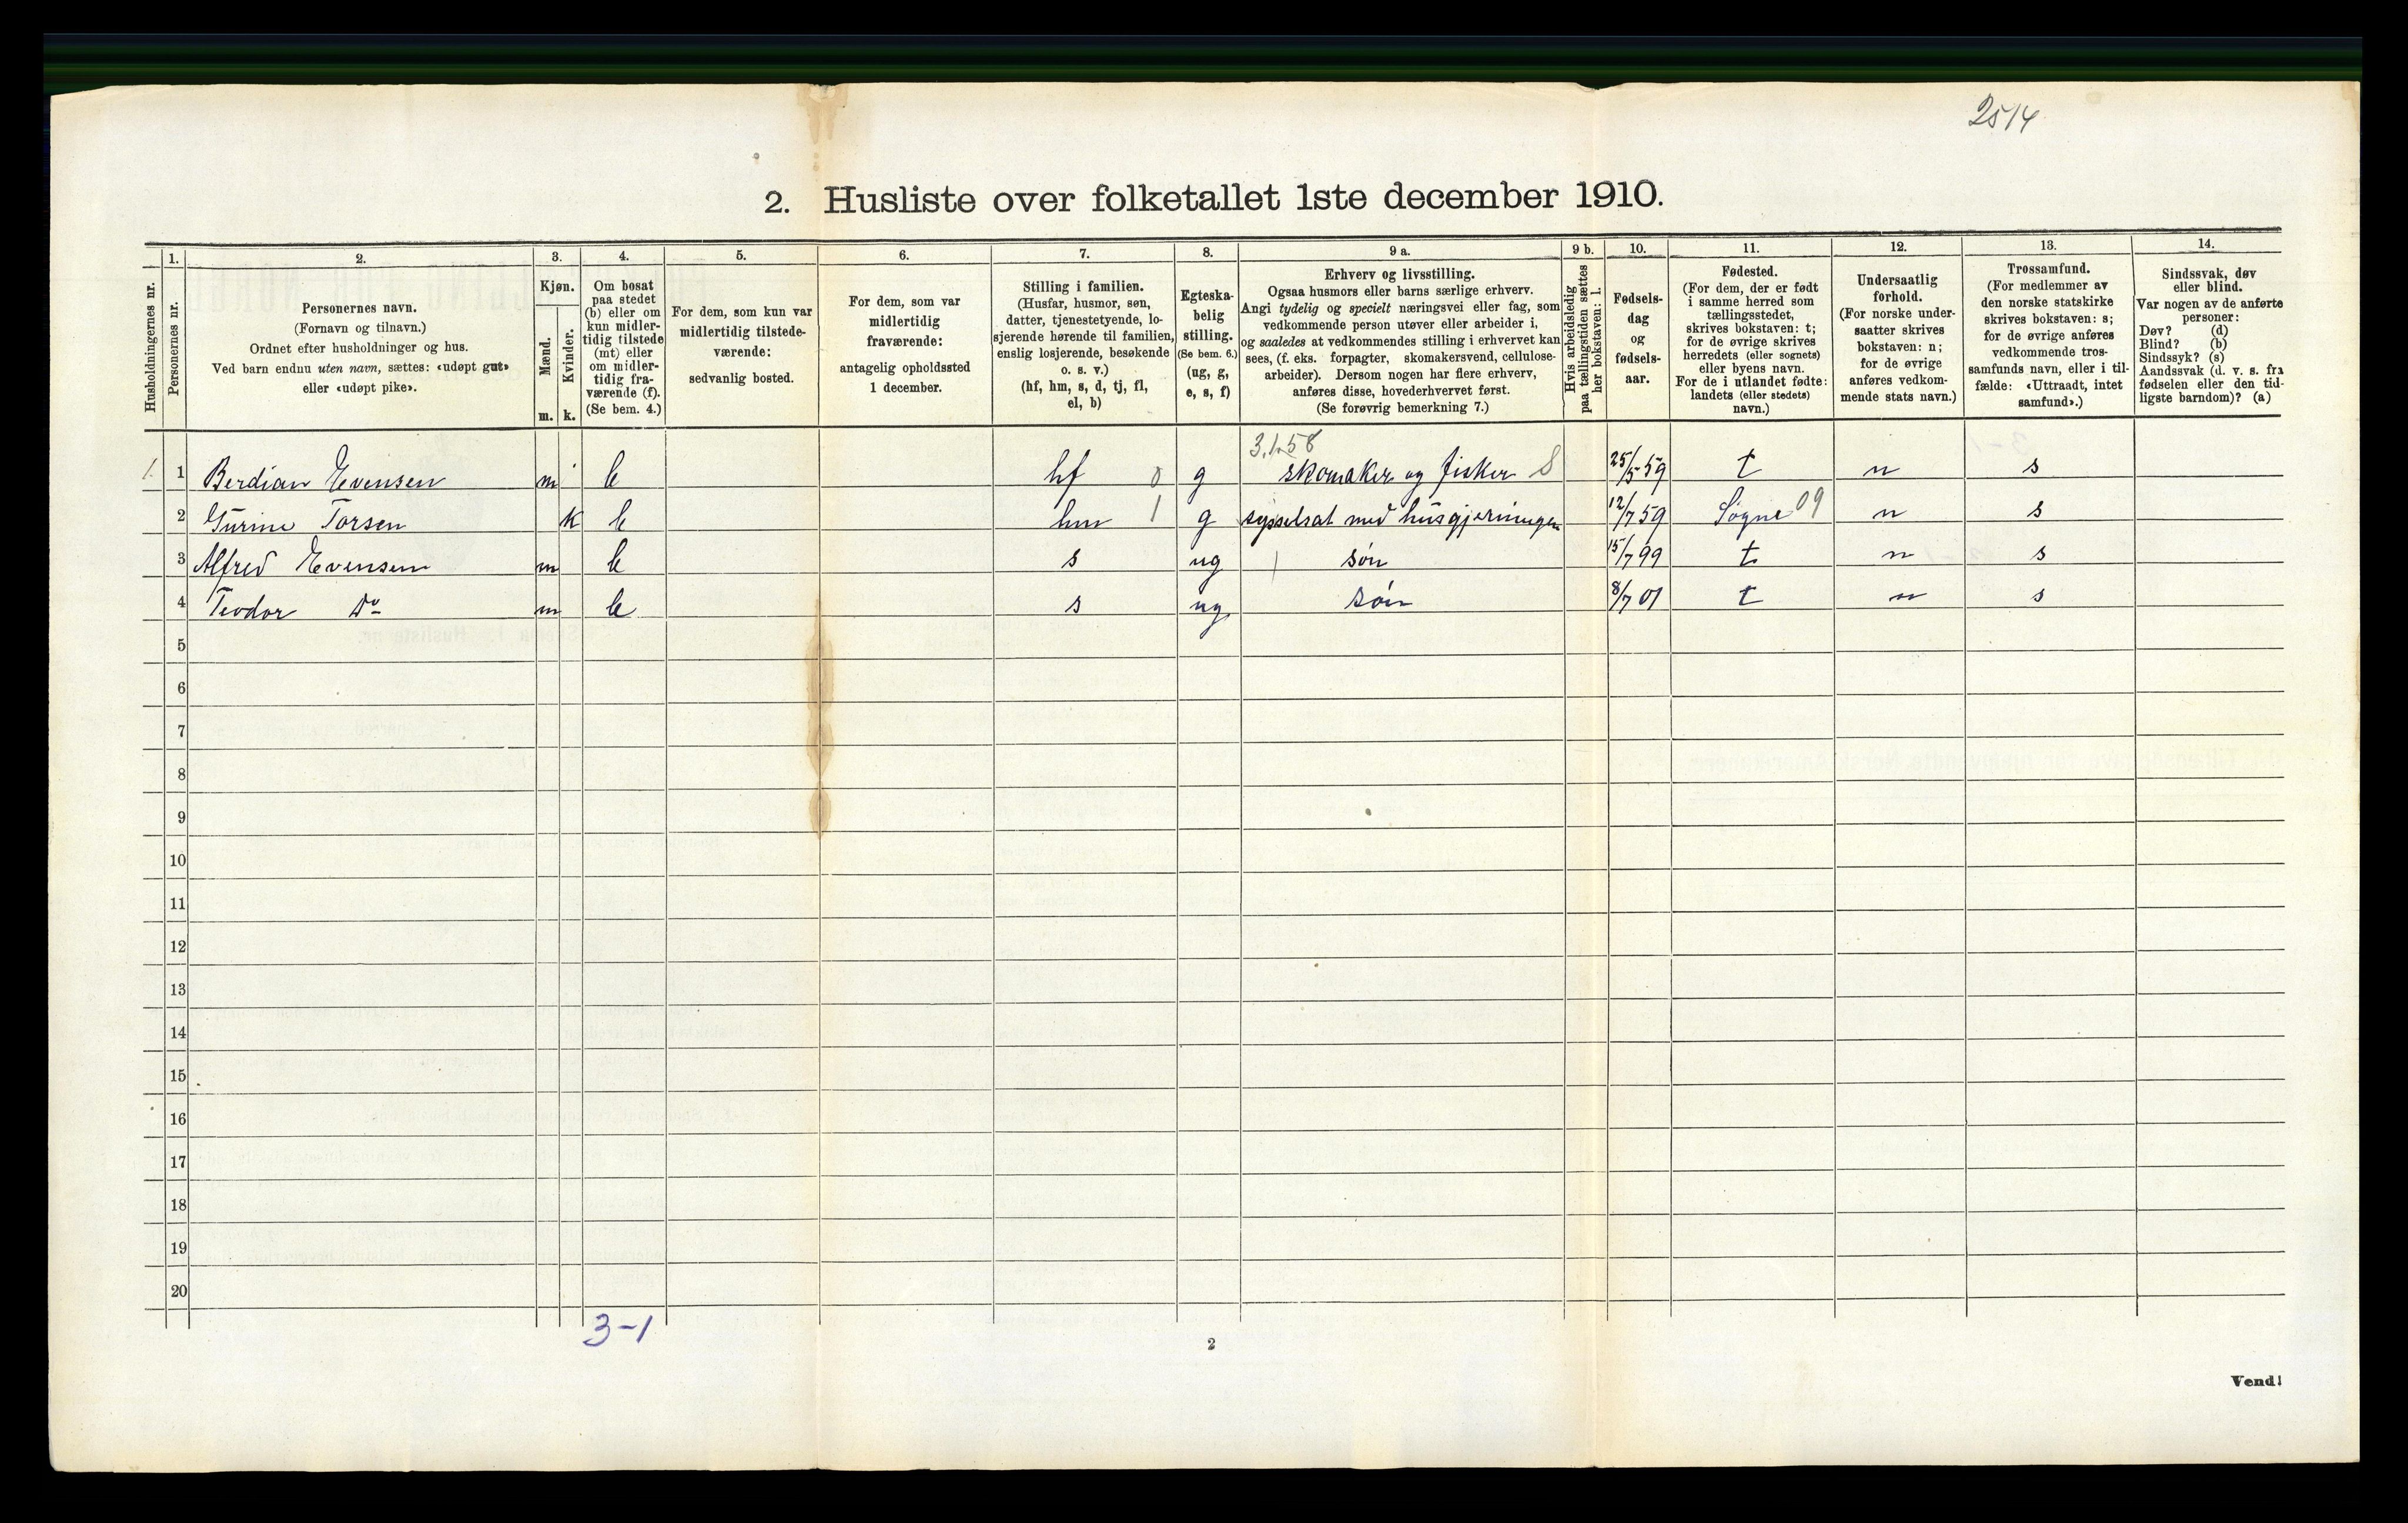 2514
2. Husliste over folketallet 1ste december 1910.
Husholdningernes nr.
1. Personernes nr.
2. Personernes navn. (Fornavn og tilnavn.) Ordnet efter husholdninger og hus. Ved barn endnu uten navn, sættes: «udøpt gut» eller «udøpt pike».
3. Kjøn. Mænd. m. Kvinder. k.
4. Om bosat paa stedet (b) eller om kun midler-tidig tilstede (mt) eller om midler-tidig fra-værende (f). (Se bem. 4.)
5. For dem, som kun var midlertidig tilstede-værende: sedvanlig bosted.
6. For dem, som var midlertidig fraværende: antagelig opholdssted 1 december.
7. Stilling i familien. (Husfar, husmor, søn, datter, tjenestetyende, lo-sjerende hørende til familien, enslig losjerende, besøkende o. s. v.) (hf, hm, s, d, tj, fl, el, b)
8. Egteska-belig stilling. (Se bem. 6.) (ug, g, e, s, f)
9 a. Erhverv og livsstilling. Ogsaa husmors eller barns særlige erhverv. Angi tydelig og specielt næringsvei eller fag, som vedkommende person utøver eller arbeider i, og saaledes at vedkommendes stilling i erhvervet kan sees, (f. eks. forpagter, skomakersvend, cellulose-arbeider). Dersom nogen har flere erhverv, anføres disse, hovederhvervet først. (Se forøvrig bemerkning 7.)
9 b. Hvis arbeidsledig paa tællingstiden sættes her bokstaven: l.
10. Fødsels-dag og fødsels-aar.
11. Fødested. (For dem, der er født i samme herred som tællingsstedet, skrives bokstaven: t; for de øvrige skrives herredets (eller sognets) eller byens navn. For de i utlandet fødte: landets (eller stedets) navn.)
12. Undersaatlig forhold. (For norske under-saatter skrives bokstaven: n; for de øvrige anføres vedkom-mende stats navn.)
13. Trossamfund. (For medlemmer av den norske statskirke skrives bokstaven: s; for de øvrige anføres vedkommende tros-samfunds navn, eller i til-fælde: «Uttraadt, intet samfund».)
14. Sindssvak, døv eller blind. Var nogen av de anførte personer: Døv? (d) Blind? (b) Sindssyk? (s) Aandssvak (d. v. s. fra fødselen eller den tid-ligste barndom)? (a)
3.1.58
1. 1 Berdian Evensen m b hf 0 g skomaker og fisker S 25/5 59 t n s
2 Gurine Torsen k b hm 1 g sysselsat med husgjerningen 12/7 59 Søgne 09 n s
3 Alfred Evensen m b s ug søn 15/7 99 t n s
4 Teodor Do m b s ug søn 8/7 01 t n s
5
6
7
8
9
10
11
12
13
14
15
16
17
18
19
20
3-1
2
Vend!